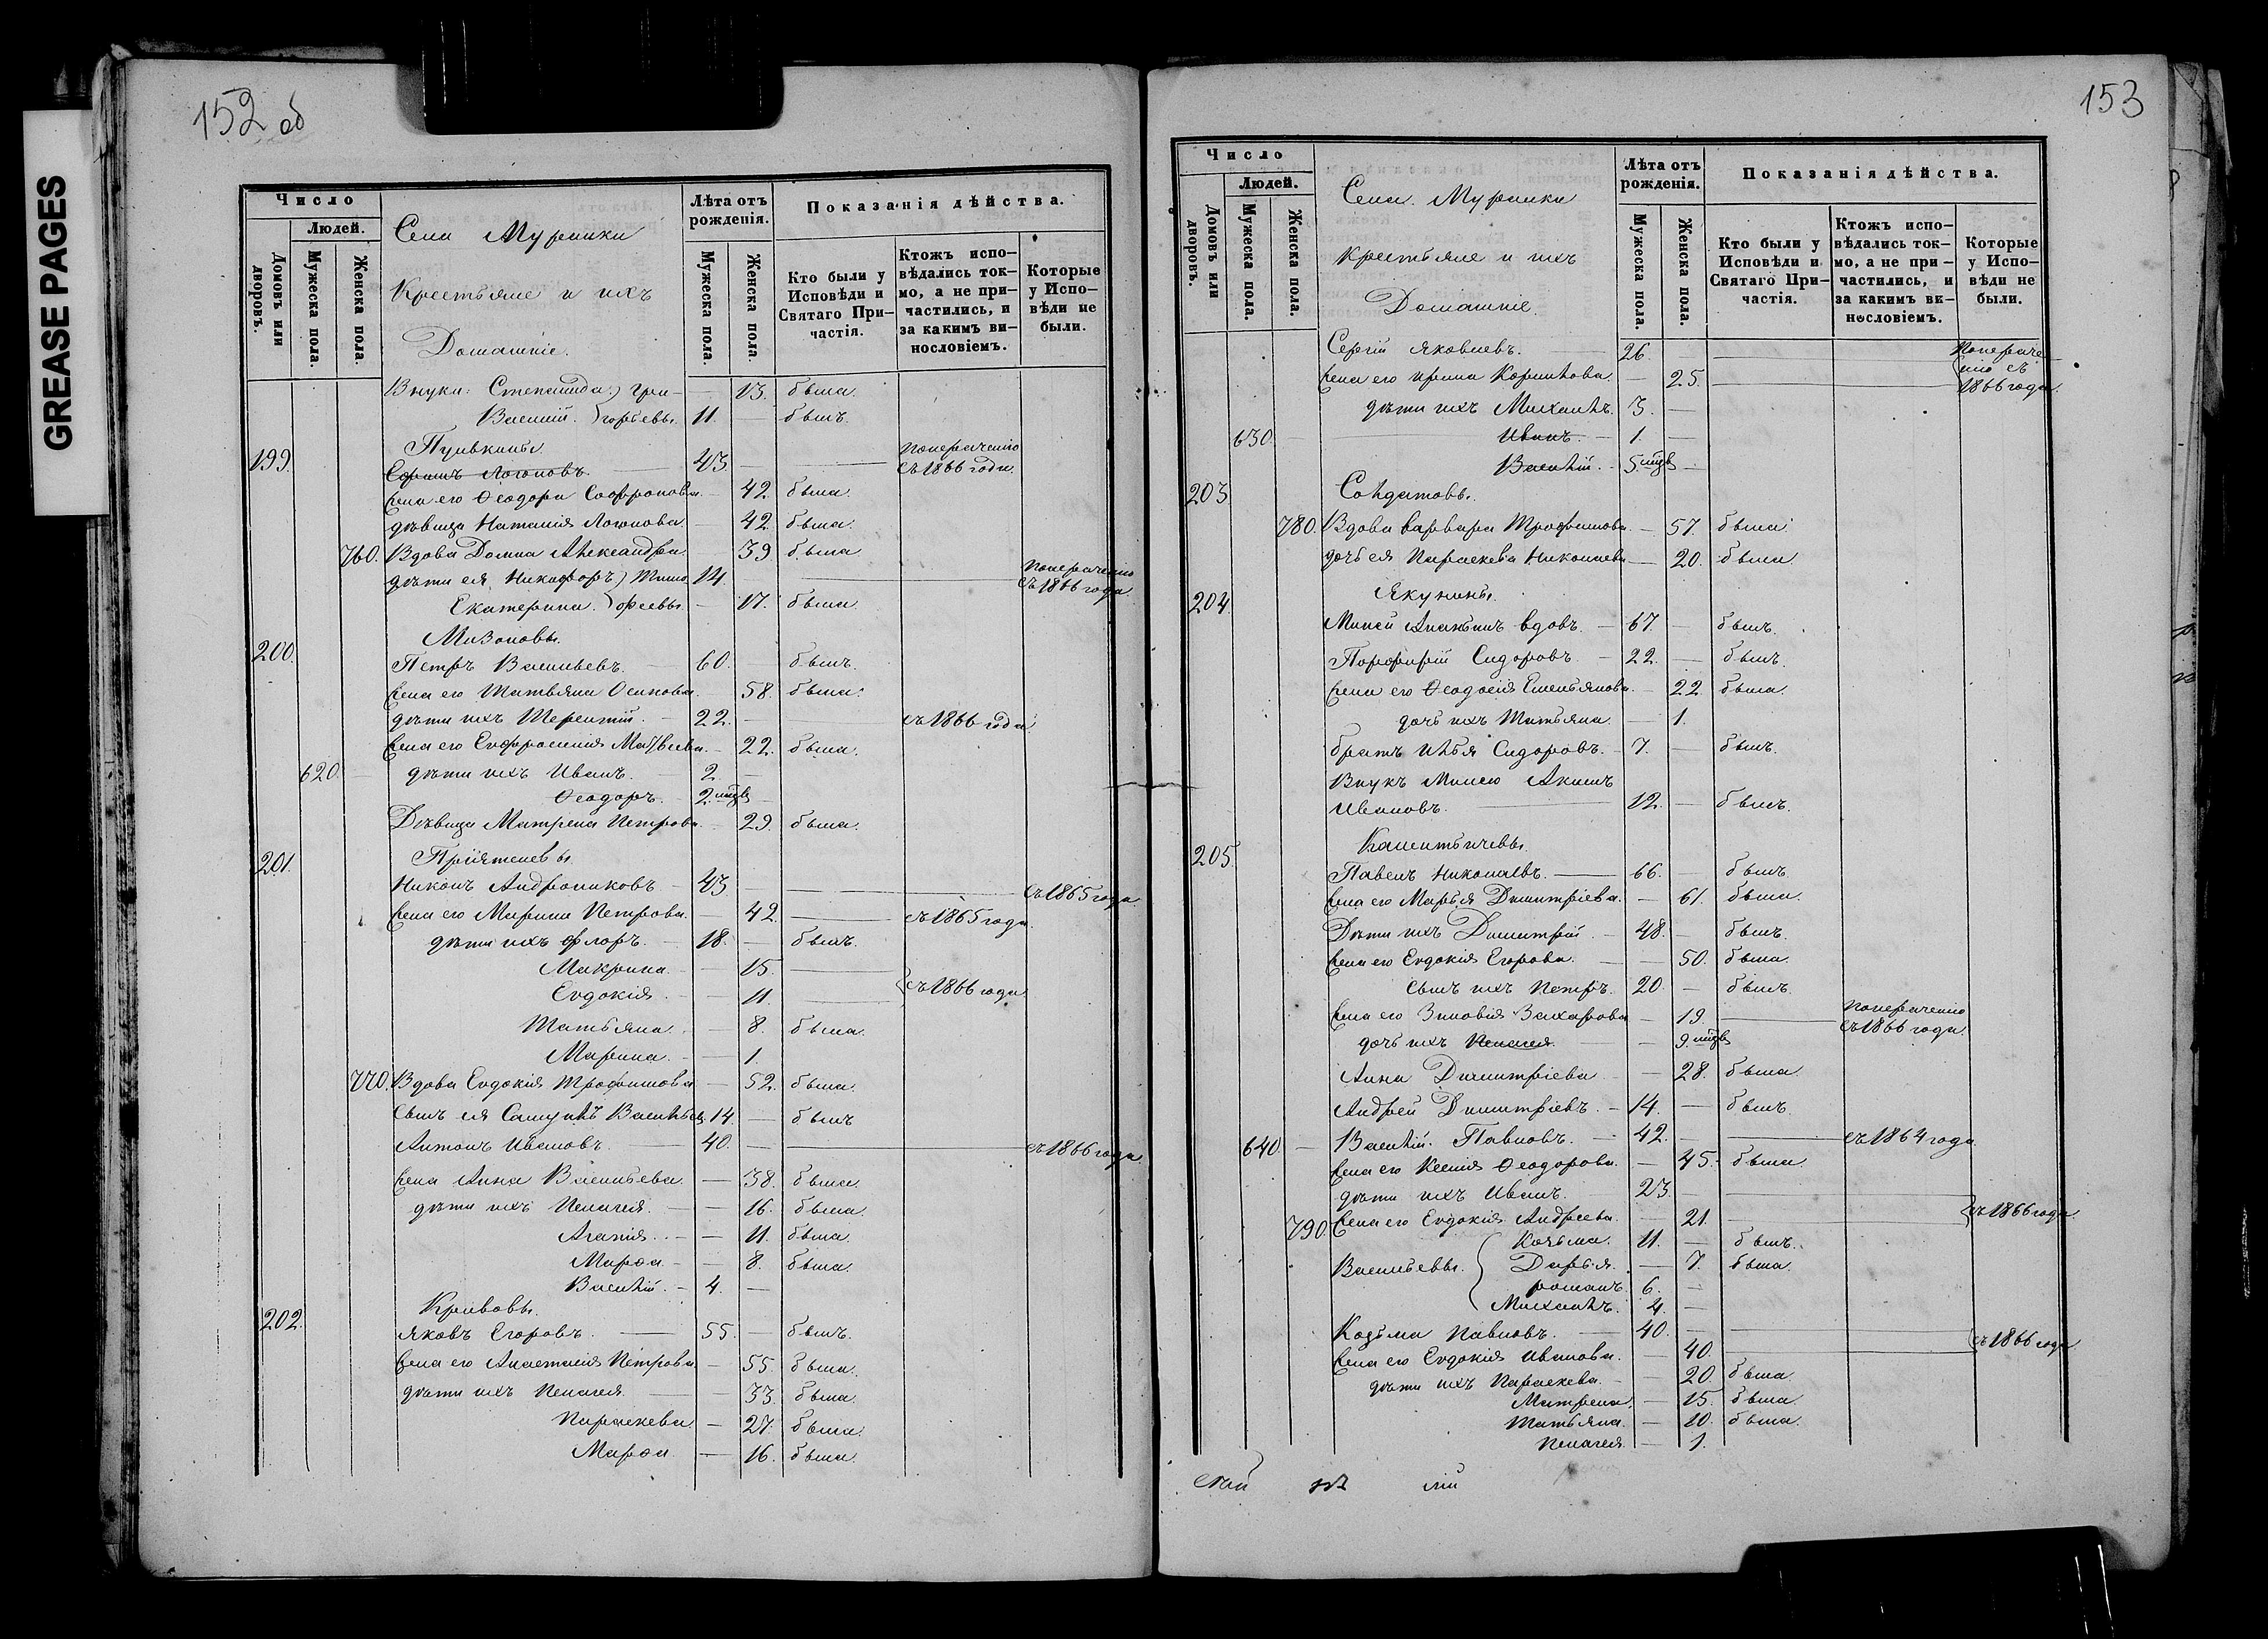 GREASE PAGES
152 об
Число
Людей.
Домовъ или дворовъ.
Мужеска пола.
Женска пола.
Села Муранки
Крестьяне и ихъ
Домашніе.
Лѣта отъ рожденія.
Мужеска пола.
Женска пола.
Показанія дѣйства.
Кто были у Исповѣди и Святаго Причастія.
Ктожъ исповѣдались токмо, а не причастились, и за какимъ винословіемъ.
Которые у Исповѣди не были.
Внуки: Степанида } Гри- — 13. была
Василій. } горьевы. 11. — былъ
199. Пулькины
Ефимъ Логиновъ 43 — — по нераченію съ 1866 года
Жена его Ѳеодора Софронова — 42. была.
дѣвица Наталія Логинова — 42. была.
760. Вдова Домна Александра — 39. была
дѣти ея Никифоръ } Тимо 14. — — по нераченію съ 1866 года
Екатерина. } ѳеевы — 17. была.
200. Мизоновы.
Петръ Васильевъ. — 60. — былъ.
Жена его Татьяна Осипова — 58. была.
дѣти ихъ Терентій. — 22. — — съ 1866 года
Жена его Евфросинія Матвѣева. — 22. была.
620. дѣти ихъ Иванъ. — 2. —
Ѳеодоръ. — 2. мѣс. —
Дѣвица Матрена Петрова — 29. была.
201. Пріятелевы.
Никонъ Андрониковъ. — 43 — — съ 1865 года.
Жена его Марина Петрова. — 42. — съ 1865 года.
дѣти ихъ Флоръ. — 18. — былъ.
Макрина. — 15. —
Евдокія. — 11. — } съ 1866 года
Татьяна. — 8. была.
Марина. — 1.
770. Вдова Евдокія Трофимова — 52. была.
Сынъ ея Самуилъ Васильевъ 14. — былъ
Антонъ Ивановъ. — 40. — — съ 1866 года.
Жена Анна Васильева. — 38. была.
дѣти ихъ Пелагея. — 16. была.
Агапія. — 11. была.
Марѳа. — 8. была.
Василій. — 4. —
202. Кривовы.
Яковъ Егоровъ. — 55. — былъ.
Жена его Анастасія Петрова — 55. была.
дѣти ихъ Пелагея. — 33. была.
Параскева. — 27. была.
Марѳа. — 16. была.
153
Число
Людей.
Домовъ или дворовъ.
Мужеска пола.
Женска пола.
Села Муранки
Крестьяне и ихъ
Домашніе.
Лѣта отъ рожденія.
Мужеска пола.
Женска пола.
Показанія дѣйства.
Кто были у Исповѣди и Святаго Причастія.
Ктожъ исповѣдались токмо, а не причастились, и за какимъ винословіемъ.
Которые у Исповѣди не были.
Сергій Яковлевъ. — 26. — — по нераче-
Жена его Ирина Корнилова. — 25. — нію съ 1866 года.
дѣти ихъ Михаилъ. 3. —
630. — Иванъ. — 1. —
Василій. — 5. мѣс. —
203. Солдатовы.
780. Вдова Варвара Трофимова — 57. была.
дочь ея Параскева Николаева — 20. была
204. Якунины.
Минсй Ананьинъ вдовъ. — 67. — былъ.
Порфирій Сидоровъ — 22. — былъ.
Жена его Ѳеодосія Емельянова. — 22. была.
дочь ихъ Татьяна. — 1.
братъ Илья Сидоровъ. — 7. — былъ.
Внукъ Акимъ
Ивановъ. — 12. — былъ.
205.
Павелъ Николаевъ. — 66. — былъ.
Жена его Марья Димитріева. — 61. была.
Дѣти ихъ Димитрій. — 48. — былъ.
Жена его Евдокія Егорова. — 50. была.
сынъ ихъ Петръ. 20. — былъ.
Жена его Зиновія Захарова — 19. — по нераченію съ 1866 года.
дочь ихъ Пелагея. — 9. мѣс.
Анна Димитріева — 28. была.
Андрей Димитріевъ. — 14. — былъ.
640. Василій. Павловъ. — 42. — — съ 1864 года
Жена его Ксенія Ѳеодорова. — 45. была.
дѣти ихъ Иванъ. — 23. — —
790. Жена его Евдокія Андреева. — 21. — } съ 1866 года.
Козьма. 11. — былъ.
Васильевы. { Дарья. — 7. была.
Романъ. 6. —
Михаилъ. 4. —
Козьма Павловъ. — 40. — —
Жена его Евдокія Иванова. — 40. — } съ 1866 года
дѣти ихъ Параскева. — 20. была.
Матрена. — 15. была.
Татьяна. — 10. была.
Пелагея. — 1.